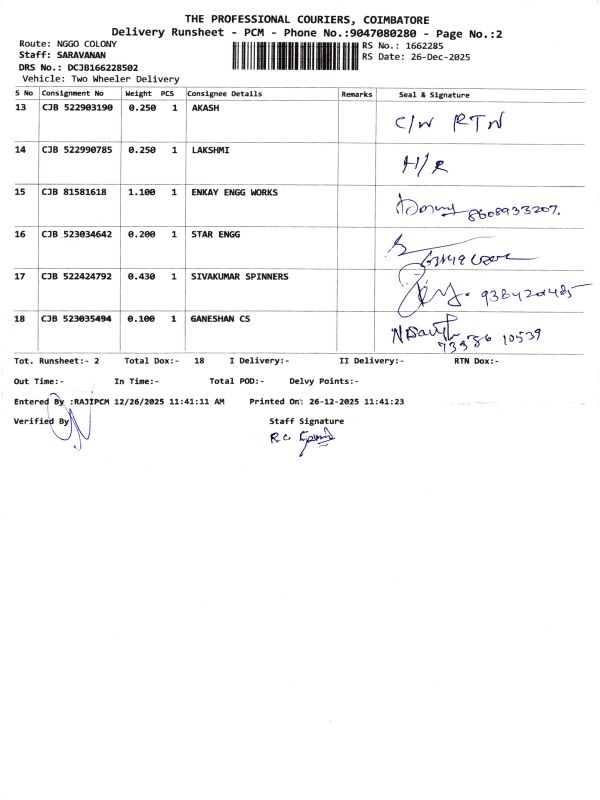 THE PROFESSIONAL COURIERS, COIMBATORE
Delivery Runsheet - PCM - Phone No.:9047080280 - Page No.:2
Route: NGGO COLONY RS No.: 1662285
Staff: SARAVANAN RS Date: 26-Dec-2025
DRS No.: DCJB166228502
Vehicle: Two Wheeler Delivery
S No Consignment No Weight PCS Consignee Details Remarks Seal & Signature
13 CJB 522903190 0.250 1 AKASH C/W RTN
14 CJB 522990785 0.250 1 LAKSHMI H/R
15 CJB 81581618 1.100 1 ENKAY ENGG WORKS 8608933207.
16 CJB 523034642 0.200 1 STAR ENGG
17 CJB 522424792 0.430 1 SIVAKUMAR SPINNERS
18 CJB 523035494 0.100 1 GANESHAN CS 73586 10539
Tot. Runsheet:- 2 Total Dox:- 18 I Delivery:- II Delivery:- RTN Dox:-
Out Time:- In Time:- Total POD:- Delvy Points:-
Entered By :RAJIPCM 12/26/2025 11:41:11 AM Printed On: 26-12-2025 11:41:23
Verified By Staff Signature